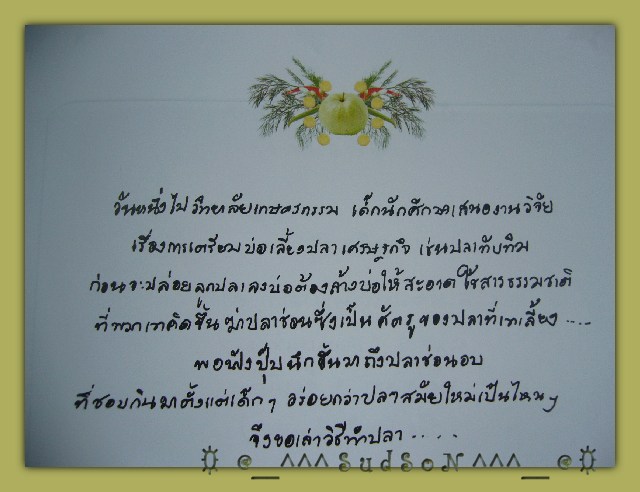 วันหนึ่งไปวิทยาลัยเกษตรกรรม เด็กนักศึกษาเสนองานวิจัย
เรื่องการเตรียมบ่อเลี้ยงปลาเศรษฐกิจ เช่นปลาทับทิม
ก่อนจะปล่อยลูกปลาลงบ่อต้องล้างบ่อให้สะอาด ใช้สารธรรมชาติ
ที่พวกเขาคิดขึ้นฆ่าปลาช่อนซึ่งเป็นศัตรูของปลาที่เขาเลี้ยง ....
พอฟังปุ๊บนึกขึ้นมาถึงปลาช่อนอบ
ที่ชอบกินมาตั้งแต่เด็กๆ อร่อยกว่าปลาสมัยใหม่เป็นไหนๆ
จึงขอเล่าวิธีทำปลา ....
☼ @__^^^SudSoN^^^__@☼